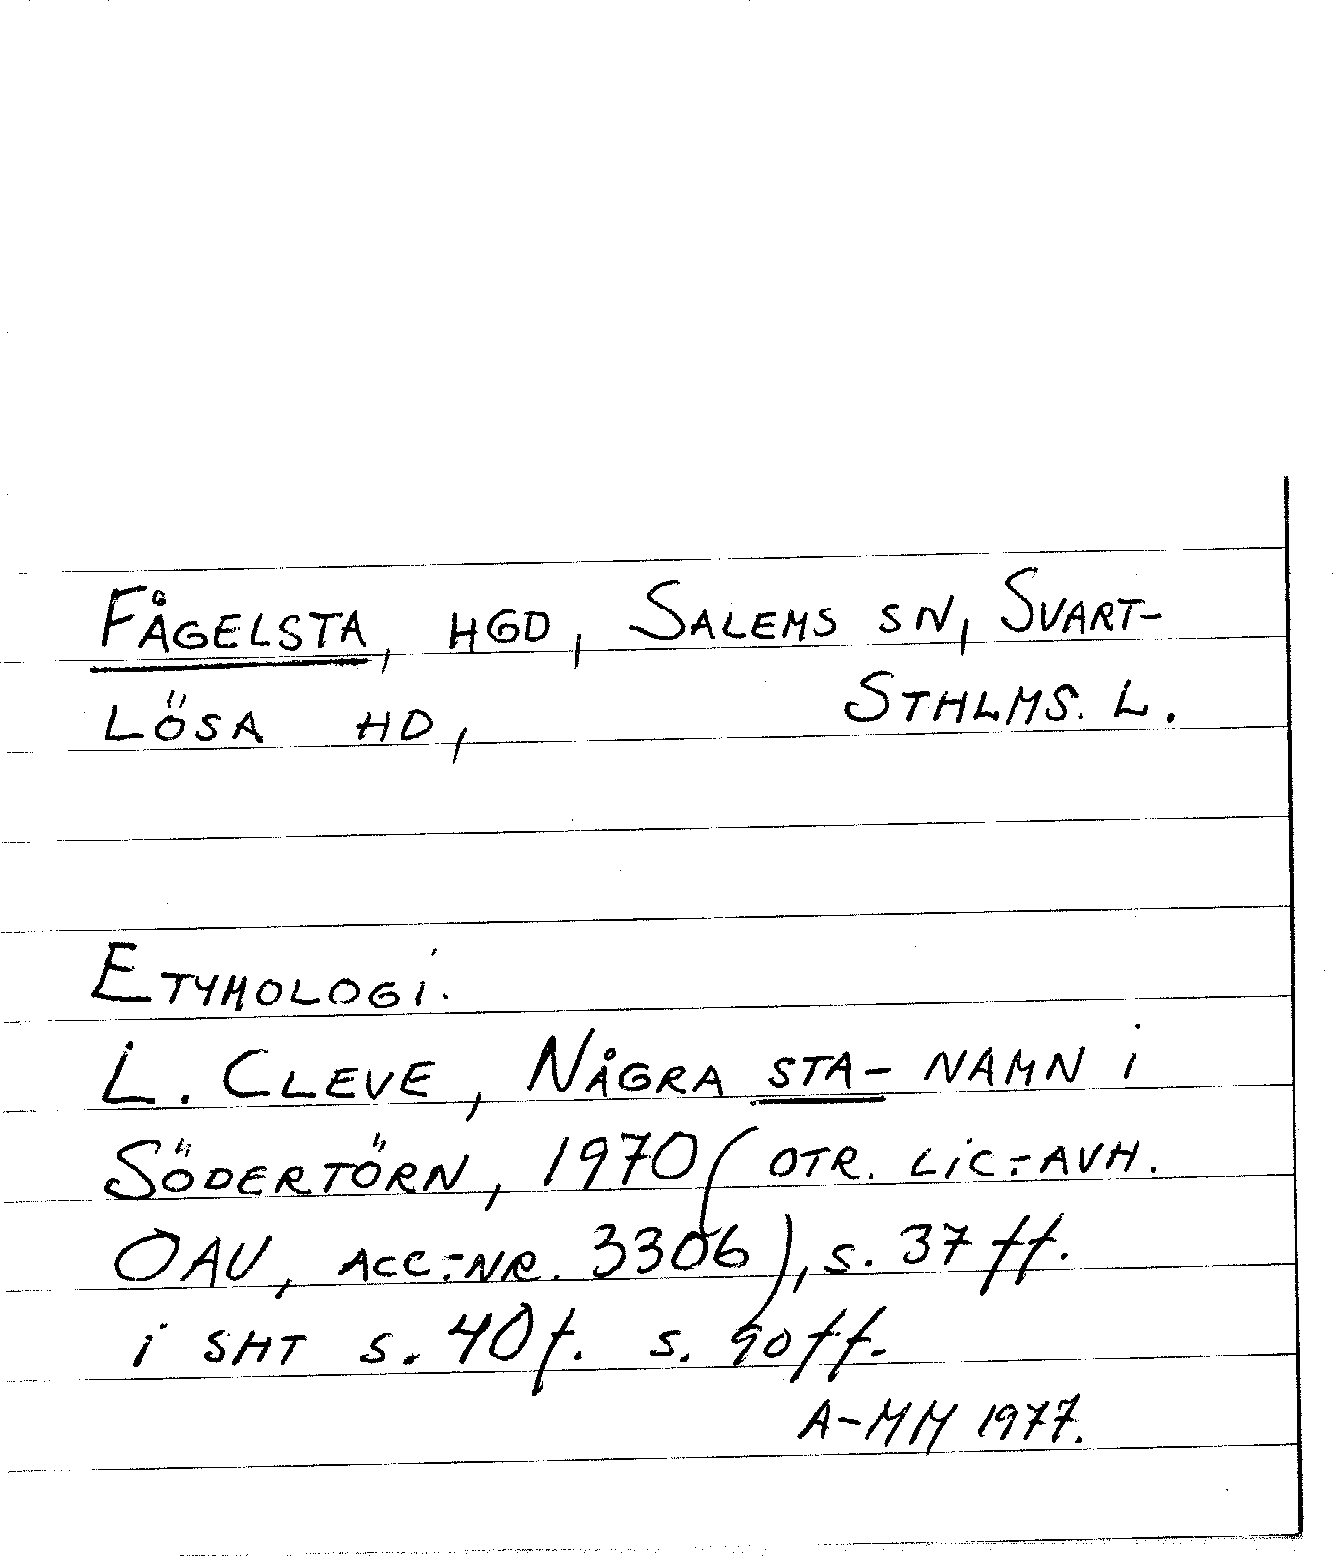 FÅGELSTA, HGD, SALEMS SN, SVART-
LÖSA HD, STHLMS. L.
ETYMOLOGI.
L. CLEVE, NÅGRA STA- NAMN i
SÖDERTÖRN, 1970 (OTR. LIC.-AVH.
OAU, ACC.-NR. 3306), S. 37 ff.
i SHT S. 40 f. S. 90 ff.
A-MM 1977.